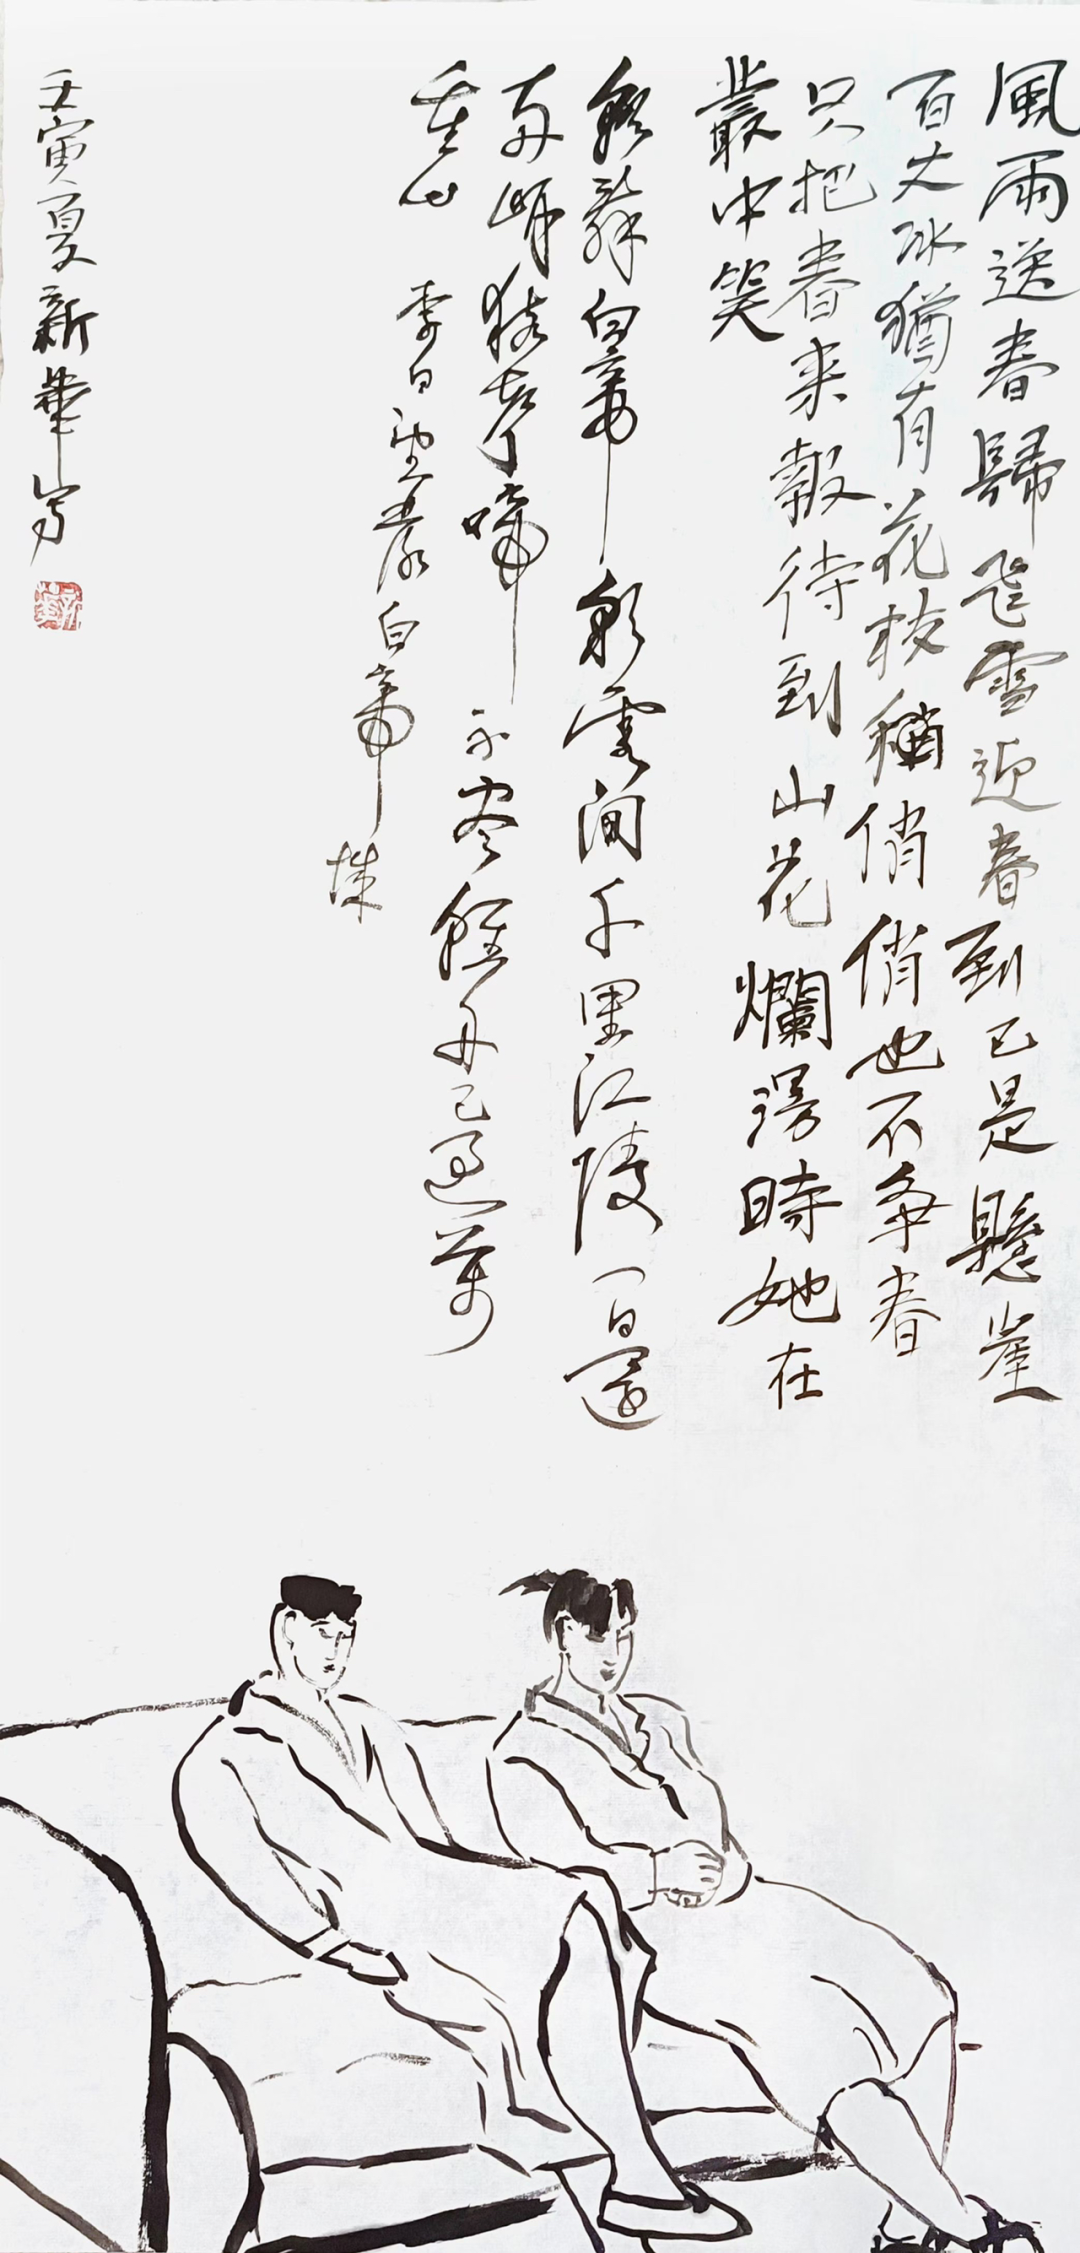 風雨送春歸飛雪迎春到已是懸崖
百丈冰猶有花枝稍俏俏也不争春
只把春来報待到山花爛漫時她在
叢中笑
朝辞白帝彩雲間千里江陵一日還
两岸猿声啼不尽輕舟已過萬
重山
李白
白帝城
壬寅夏新華写